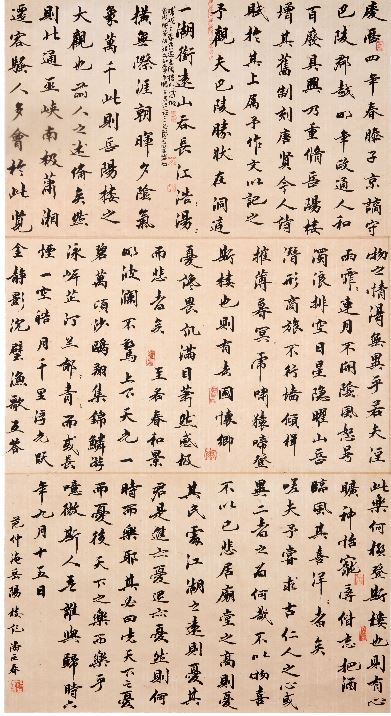 慶曆四年春滕子京謫守
巴陵郡越明年政通人和
百廢具興乃重脩岳陽樓
增其舊制刻唐賢今人詩
賦於其上屬予作文以記之
予觀夫巴陵勝狀在洞庭
一湖銜遠山吞長江浩浩湯湯
橫無際涯朝暉夕陰氣
象萬千此則岳陽樓之
大觀也前人之述備矣然
則北通巫峽南極瀟湘
遷客騷人多會於此覽
物之情得無異乎若夫淫
雨霏霏連月不開陰風怒号
濁浪排空日星隱曜山岳
潛形商旅不行檣傾楫
摧薄暮冥冥虎嘯猿啼登
斯樓也則有去國懷鄉
憂讒畏譏滿目蕭然感極
而悲者矣 至若春和景
明波瀾不驚上下天光一
碧萬頃沙鷗翔集錦鱗游
泳岸芷汀蘭郁郁青青而或長
煙一空皓月千里浮光躍
金靜影沉璧漁歌互答
此樂何極登斯樓也則有心
曠神怡寵辱偕忘把酒
臨風其喜洋洋者矣
嗟夫予嘗求古仁人之心或
異二者之為何哉不以物喜
不以己悲居廟堂之高則憂
其民處江湖之遠則憂其
君是進亦憂退亦憂然則何
時而樂耶其必曰先天下之憂
而憂後天下之樂而樂乎
噫微斯人吾誰與歸時六
年九月十五日
范仲淹岳陽樓記